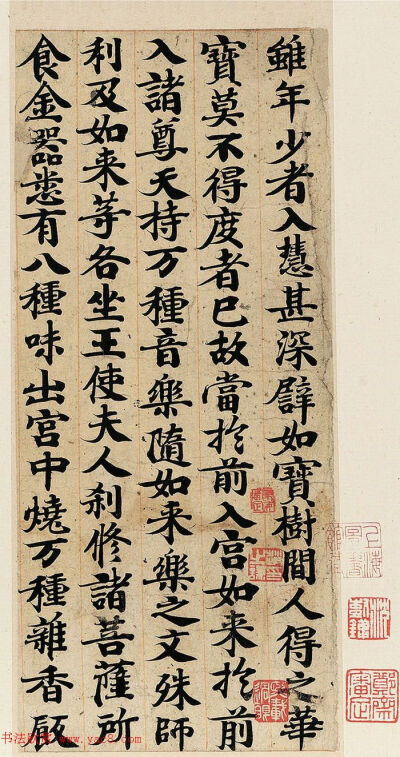 雖年少者入慧甚深譬如寶樹間人得之華
寶莫不得度者已故當扵前入宫如来扵前
入諸尊天持万種音樂隨如来樂之文殊師
利及如来等各坐王使夫人刹修諸菩薩所
食金器悉有八種味出宫中燒万種雜香飯